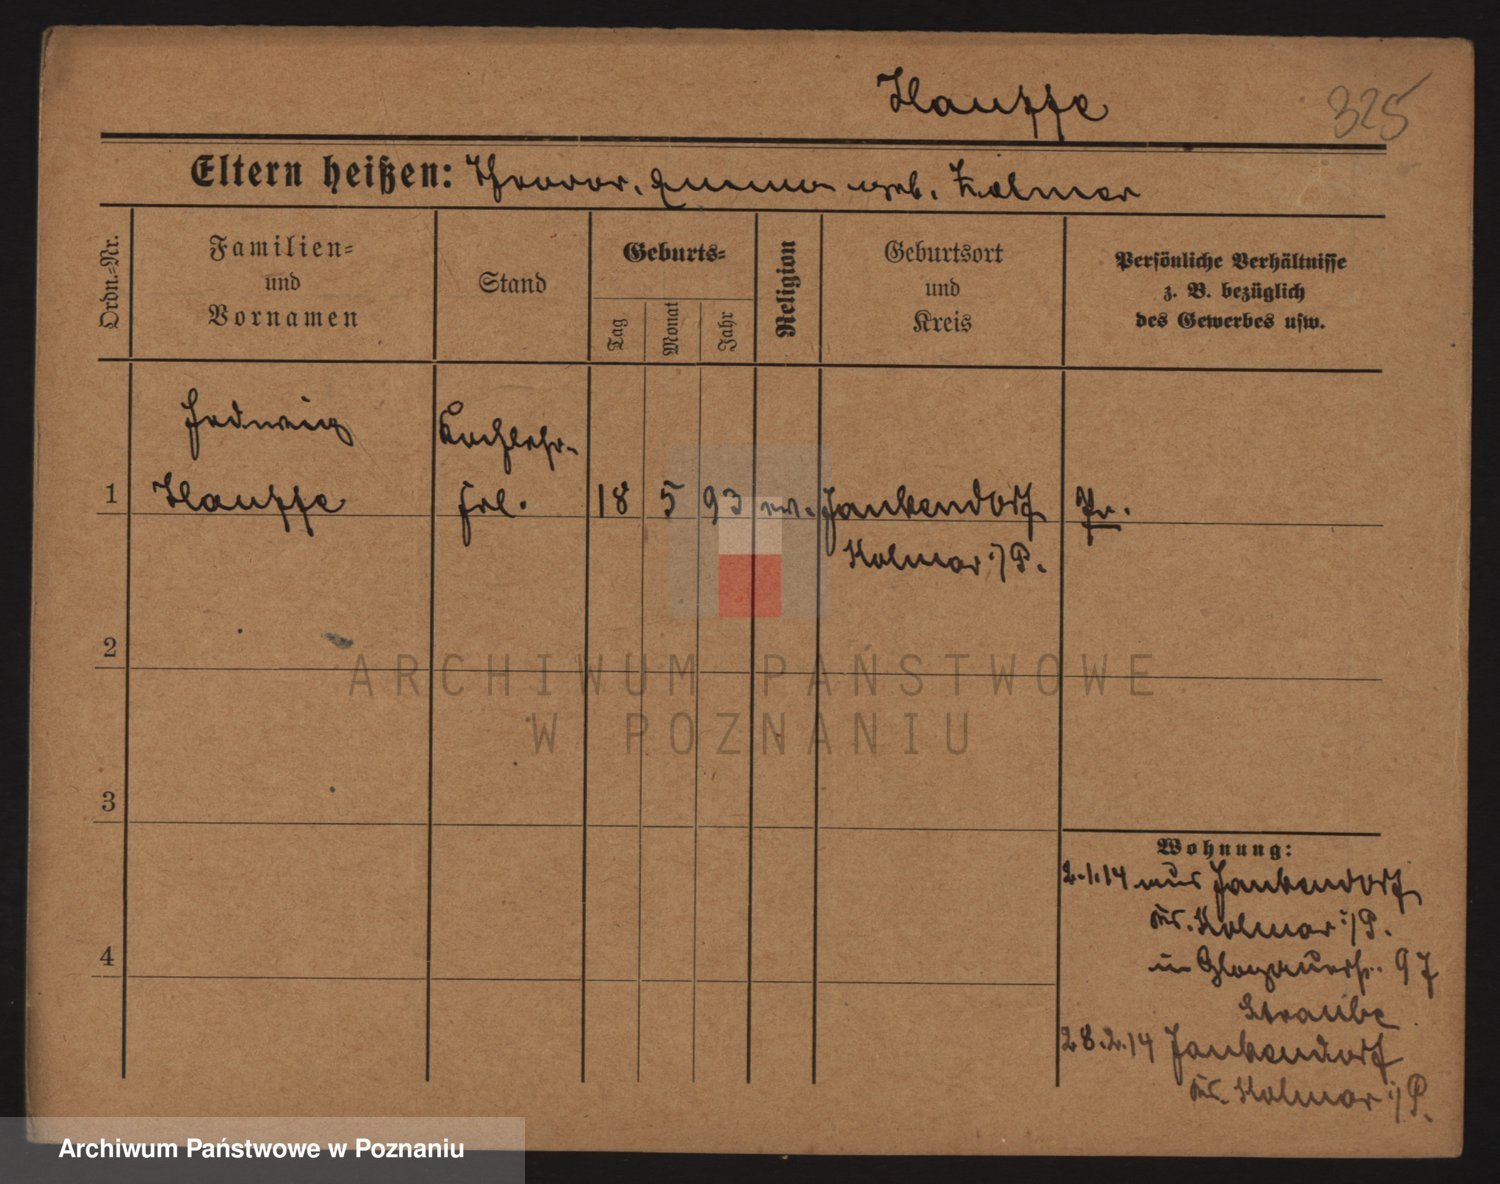 Hauffe
325
Eltern heißen: Emma geb.
Ordn.=Nr.
Familien=
und
Vornamen
Stand
Geburts=
Tag
Monat
Jahr
Religion
Geburtsort
und
Kreis
Persönliche Verhältnisse
z. B. bezüglich
des Gewerbes usw.
Hedwig Kochlehr-
1 Hauffe frl. 18 5 93 ev. Jankendorf Pr.
Kolmar i/P.
2
3
4
Wohnung:
2.1.14 aus Jankendorf
Kr. Kolmar i/P.
in Glogauerstr. 97
Straube
28.2.14 Jankendorf
Kr. Kolmar i/P.
ARCHIWUM PAŃSTWOWE
W POZNANIU
Archiwum Państwowe w Poznaniu